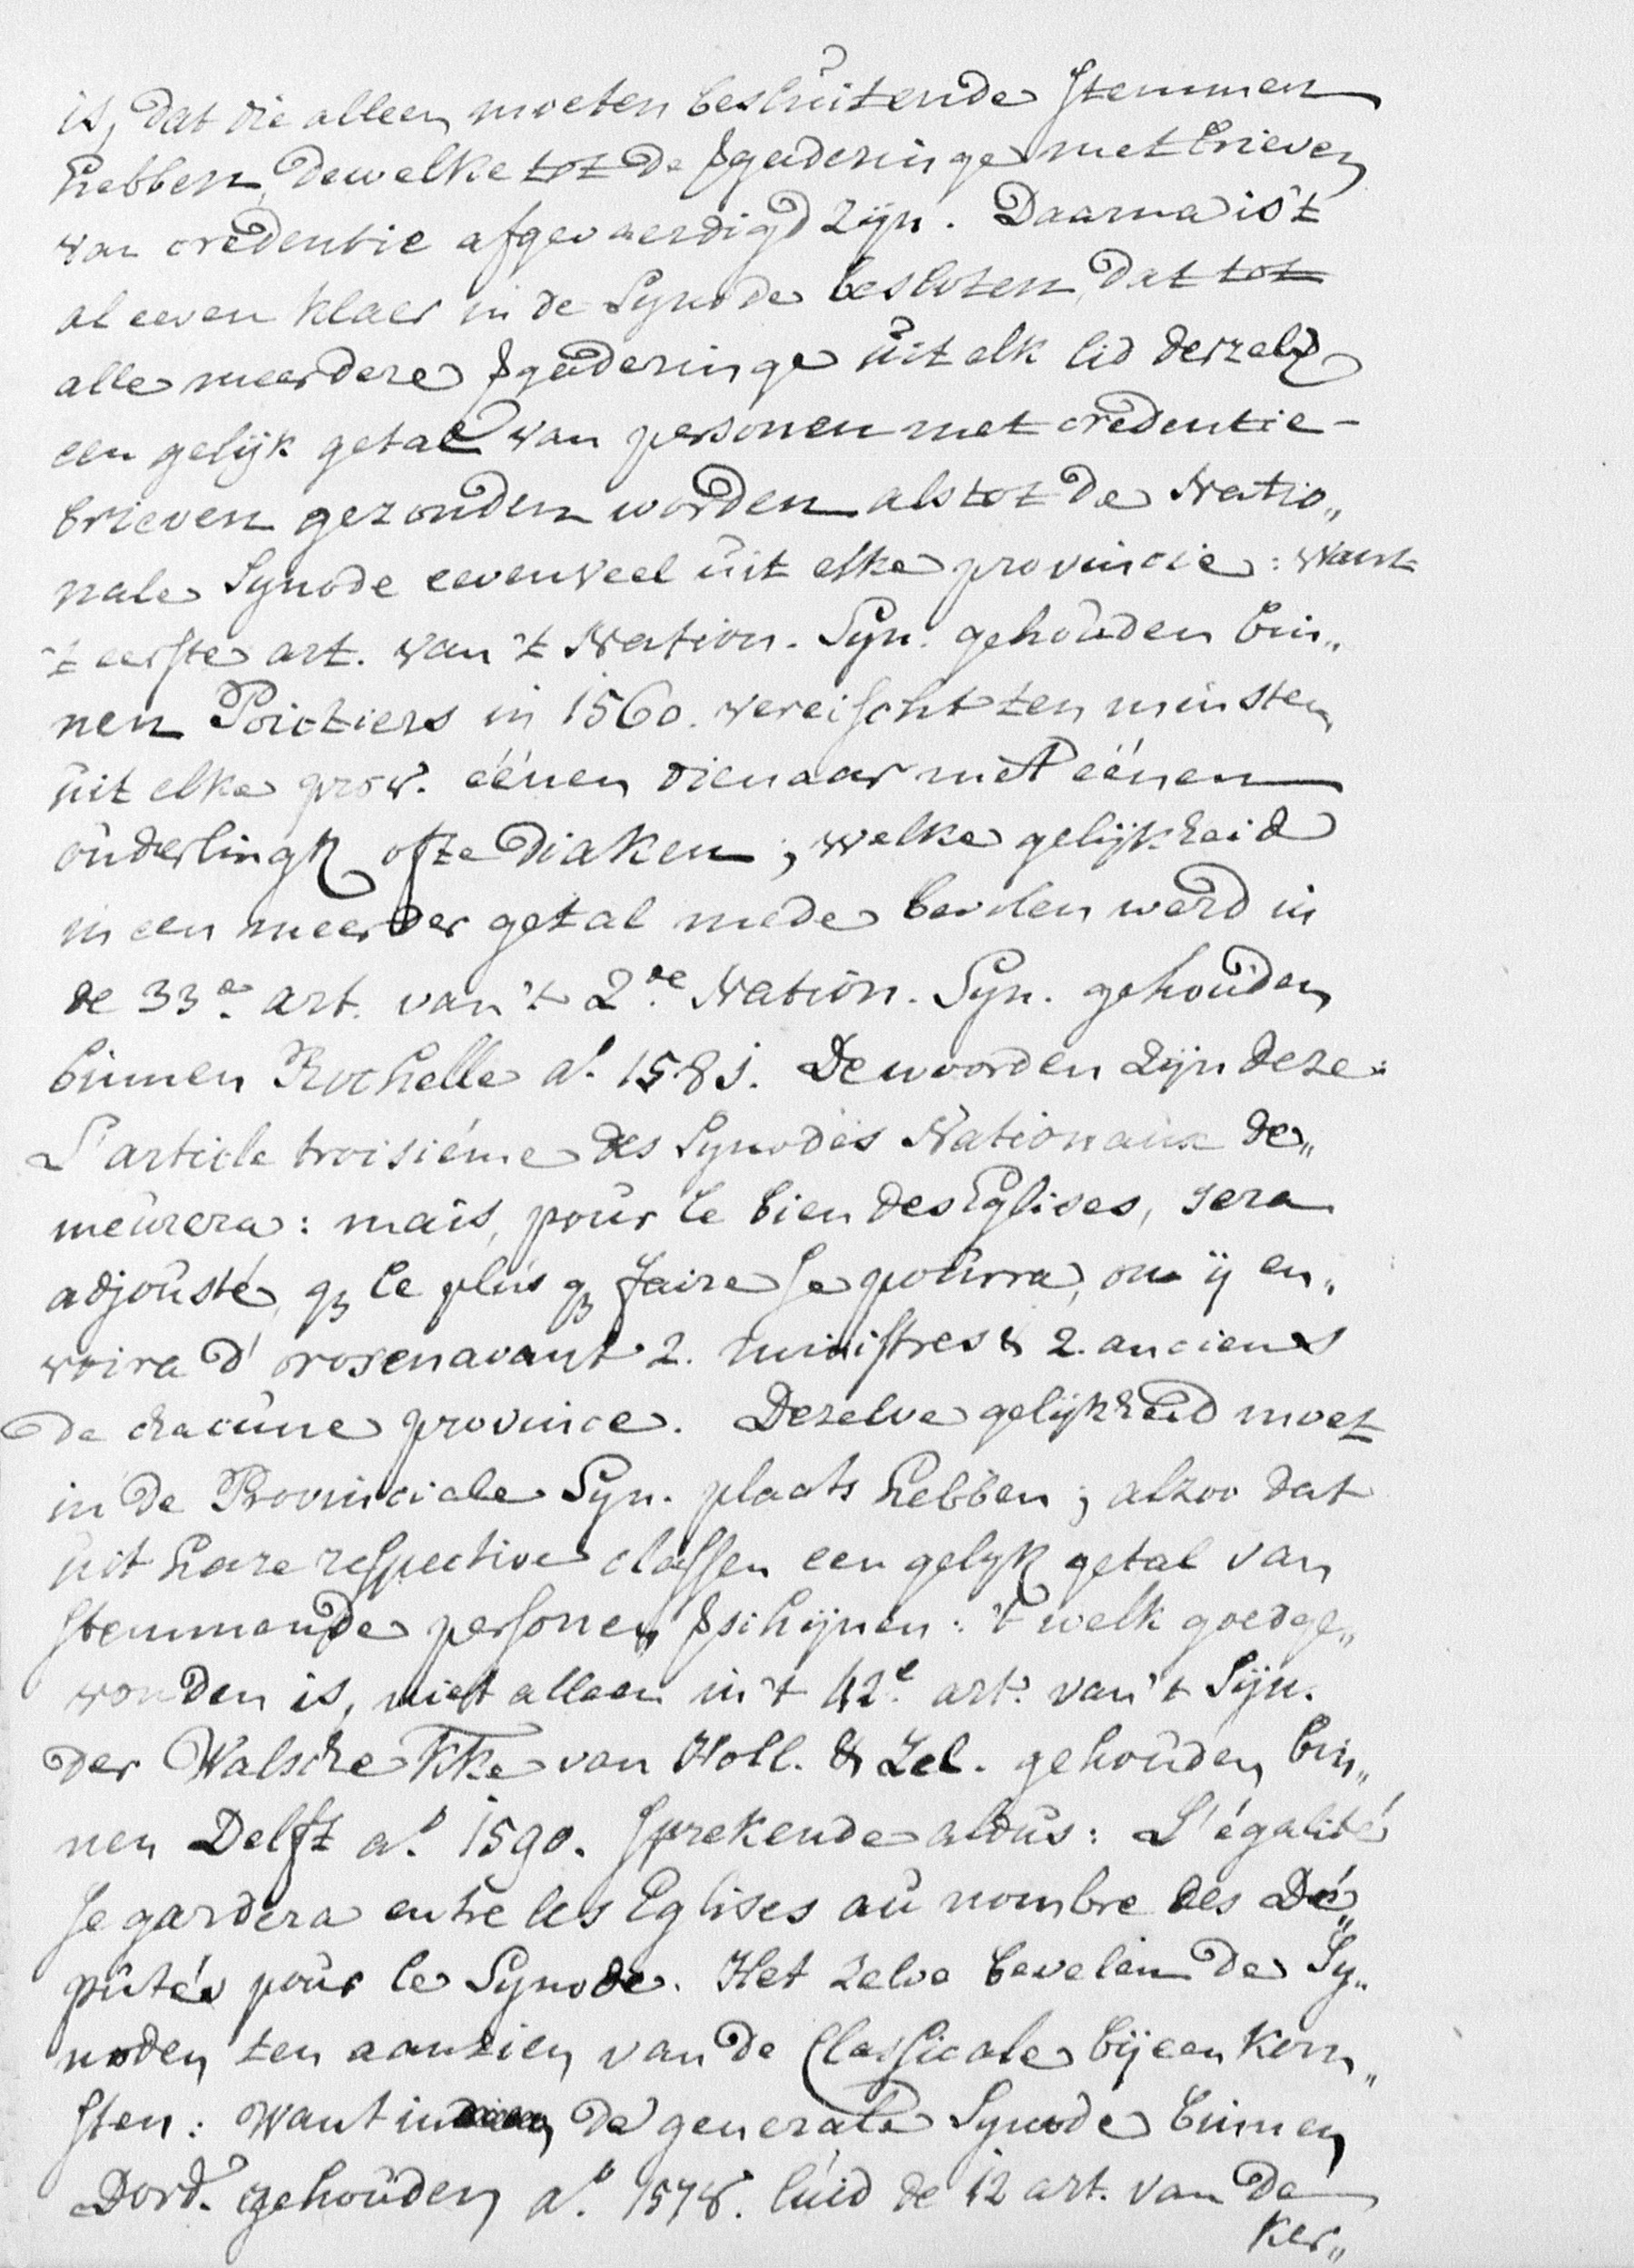 is, dat die alleen moeten besluitende stemmen
hebben, dewelke tot de vgaderinge met brieven
van credentie afgevaerdigd zijn. Daarna is 't
al eeven klaer in de Synode besloten, dat tot
alle meerdere vgaderinge uit elk lid derzelv
een gelijk getal van personen met credentie-
brieven gezonden worden als tot de Natio„
nale Synode eevenveel uit elke provincie: want
't eerste art. van 't Nation. Syn. gehouden bin„
nen Poictiers in 1560. vereischt ten minsten
uit elke prov. éénen dienaar met éénen
ouderlingk ofte diaken; welke gelijkheid
in een meerder getal mede bevolen werd in
de 33e art. van 't 2de Nation. Syn. gehouden
binnen Rochelle ao. 1581. De woorden zijn deze:
L'article troisiéme des Synodes Nationaux de„
meurera: mais, pour le bien des Eglises, sera
adjousté, q3 le plus q3 faire se pourra, on ÿ en„
voira d'oresenavant 2. ministres & 2. anciens
de chacune province. Dezelve gelijkheid moet
in de Provinciale Syn. plaats hebben; alzoo dat
uit hare respective classen een gelijk getal van
stemmende personen vschijnen: 't welk goedge„
vonden is, niet alleen in 't 42e. art. van 't Sijn.
der Walsche Kke van Holl. & Zel. gehouden bin„
nen Delft ao. 1590. sprekende aldus: L'égalité
se gardera entre les Eglises au nombre des Dé„
putés pour le Synode. Het zelve bevelen de Sy„
noden ten aanzien van de Classicale bijeenkom„
sten: Want in de generale Synode binnen
Dord. gehouden ao. 1578. luid de 12 art. van de
Ker„